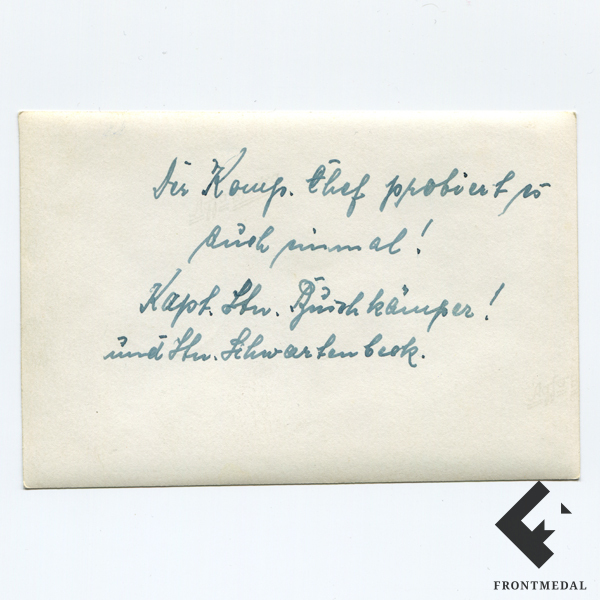 Der Komp. Chef probiert es
auch einmal!
Kapt. Ltn. Buschkämper!
und Ltn. Schwartenbeck.
FRONTMEDAL